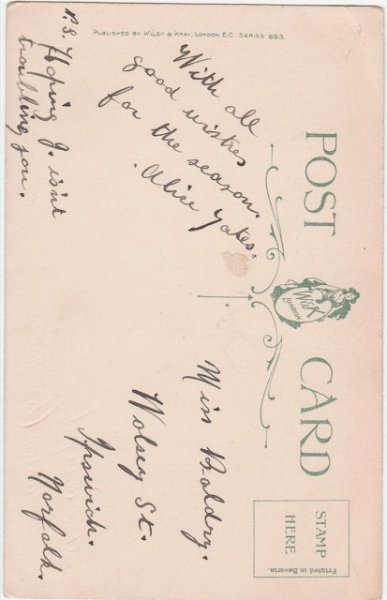 PUBLISHED BY WILDT & KRAY, LONDON E.C. SERIES 893.
POST CARD
W&K
LONDON
STAMP
HERE
Printed in Bavaria.
With all
good wishes
for the season.
Alice Yates.
P.S. Hoping J. isn't
troubling you.
Miss Baldry.
Wolsey St.
Ipswich.
Norfolk.